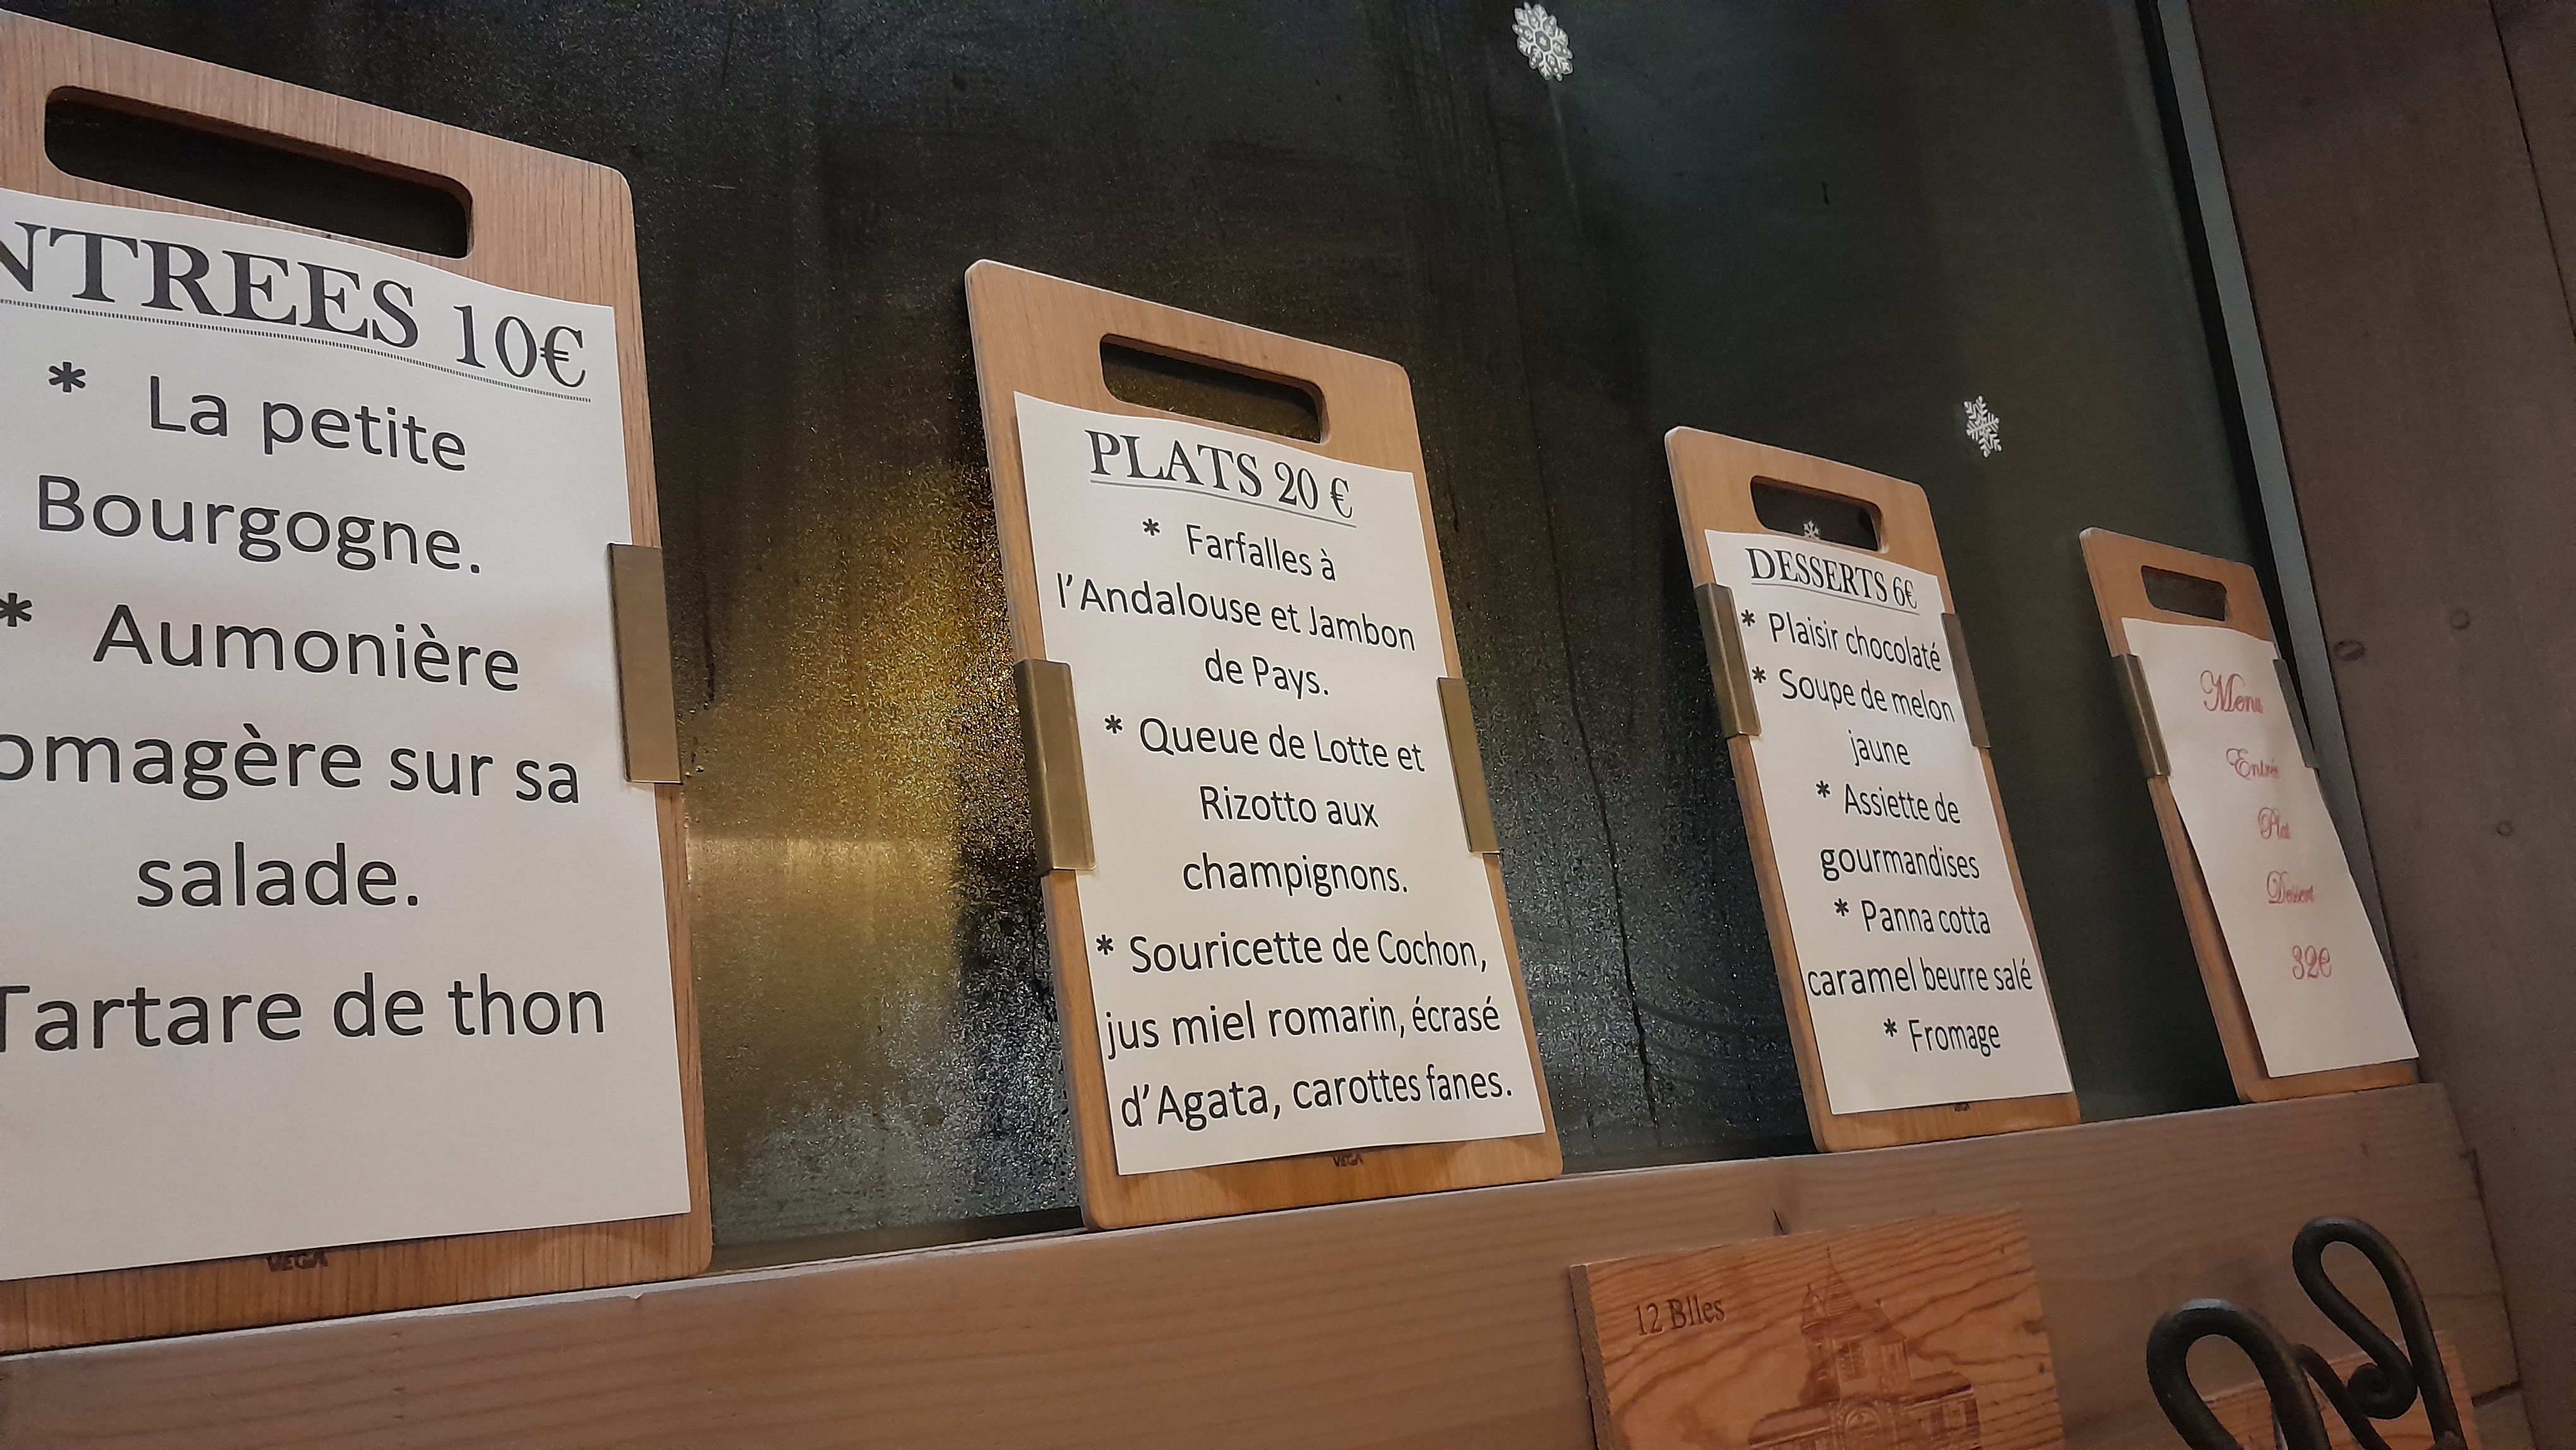 NTREES 10€
* La petite
Bourgogne.
* Aumonière
omagère sur sa
salade.
Tartare de thon
VEGA
PLATS 20 €
* Farfalles à
l'Andalouse et Jambon
de Pays.
* Queue de Lotte et
Rizotto aux
champignons.
* Souricette de Cochon,
jus miel romarin, écrasé
d'Agata, carottes fanes.
VEGA
DESSERTS 6€
* Plaisir chocolaté
* Soupe de melon
jaune
* Assiette de
gourmandises
* Panna cotta
caramel beurre salé
* Fromage
Menu
Entrée
Plat
Dessert
32€
12 Blles